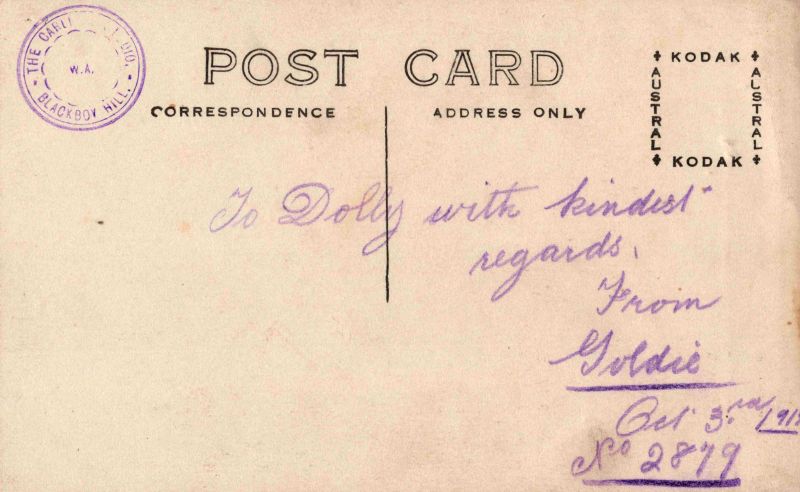 THE W.A. BLACKBOY HILL.
POST CARD
CORRESPONDENCE
ADDRESS ONLY
KODAK
AUSTRAL
AUSTRAL
KODAK
To Dolly with kindest
regards.
From
Goldie
Oct 3rd
No 2879